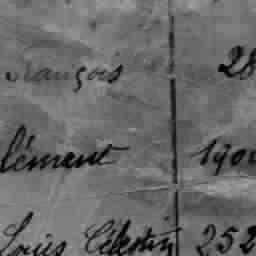 François 28
lément 190
Louis Célestin 252